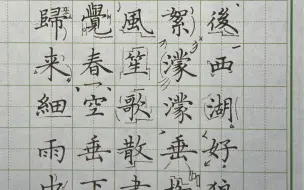 後西湖好狼
絮濛濛垂柳
風笙歌散盡
覺春空垂下
歸来細雨中